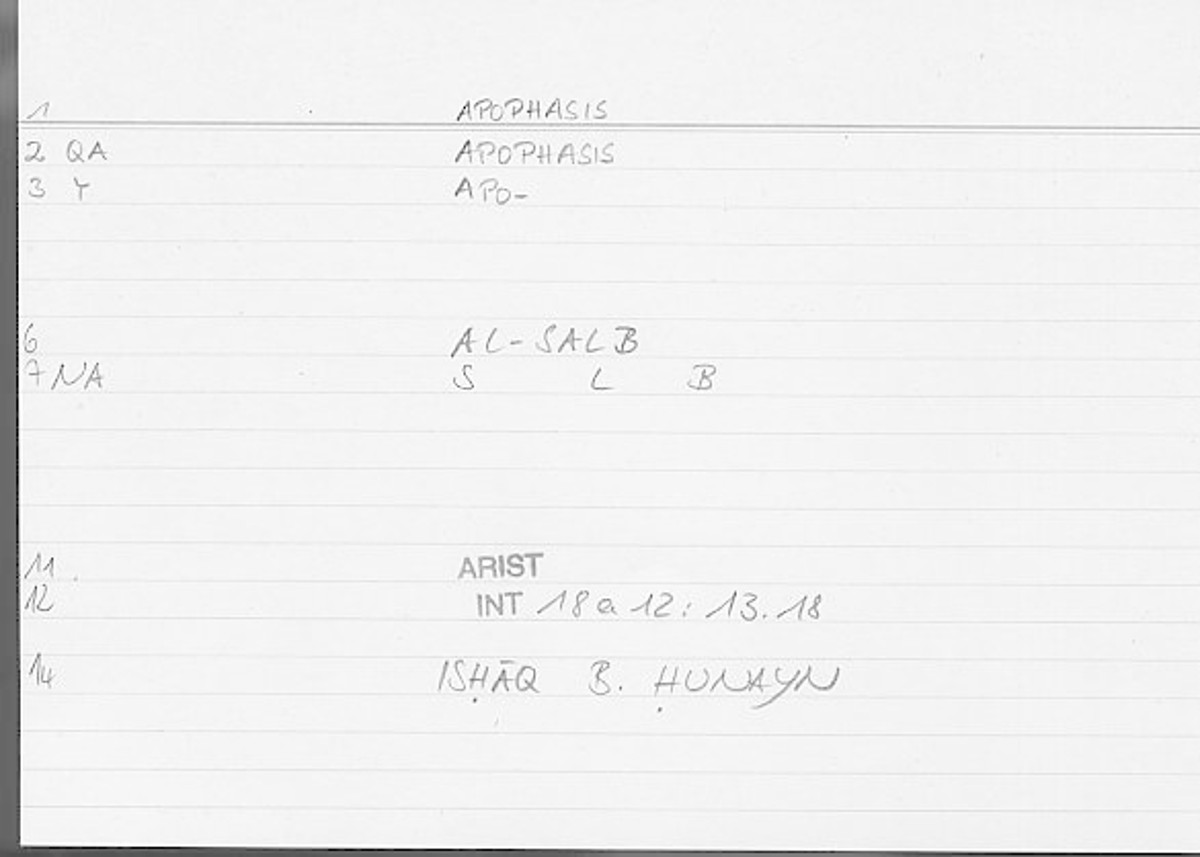 1 APOPHASIS
2 QA APOPHASIS
3 Y APO-
6 AL-SALB
7 NA S L B
11 ARIST
12 INT 18a12: 13.18
14 ISḤĀQ B. ḤUNAYN